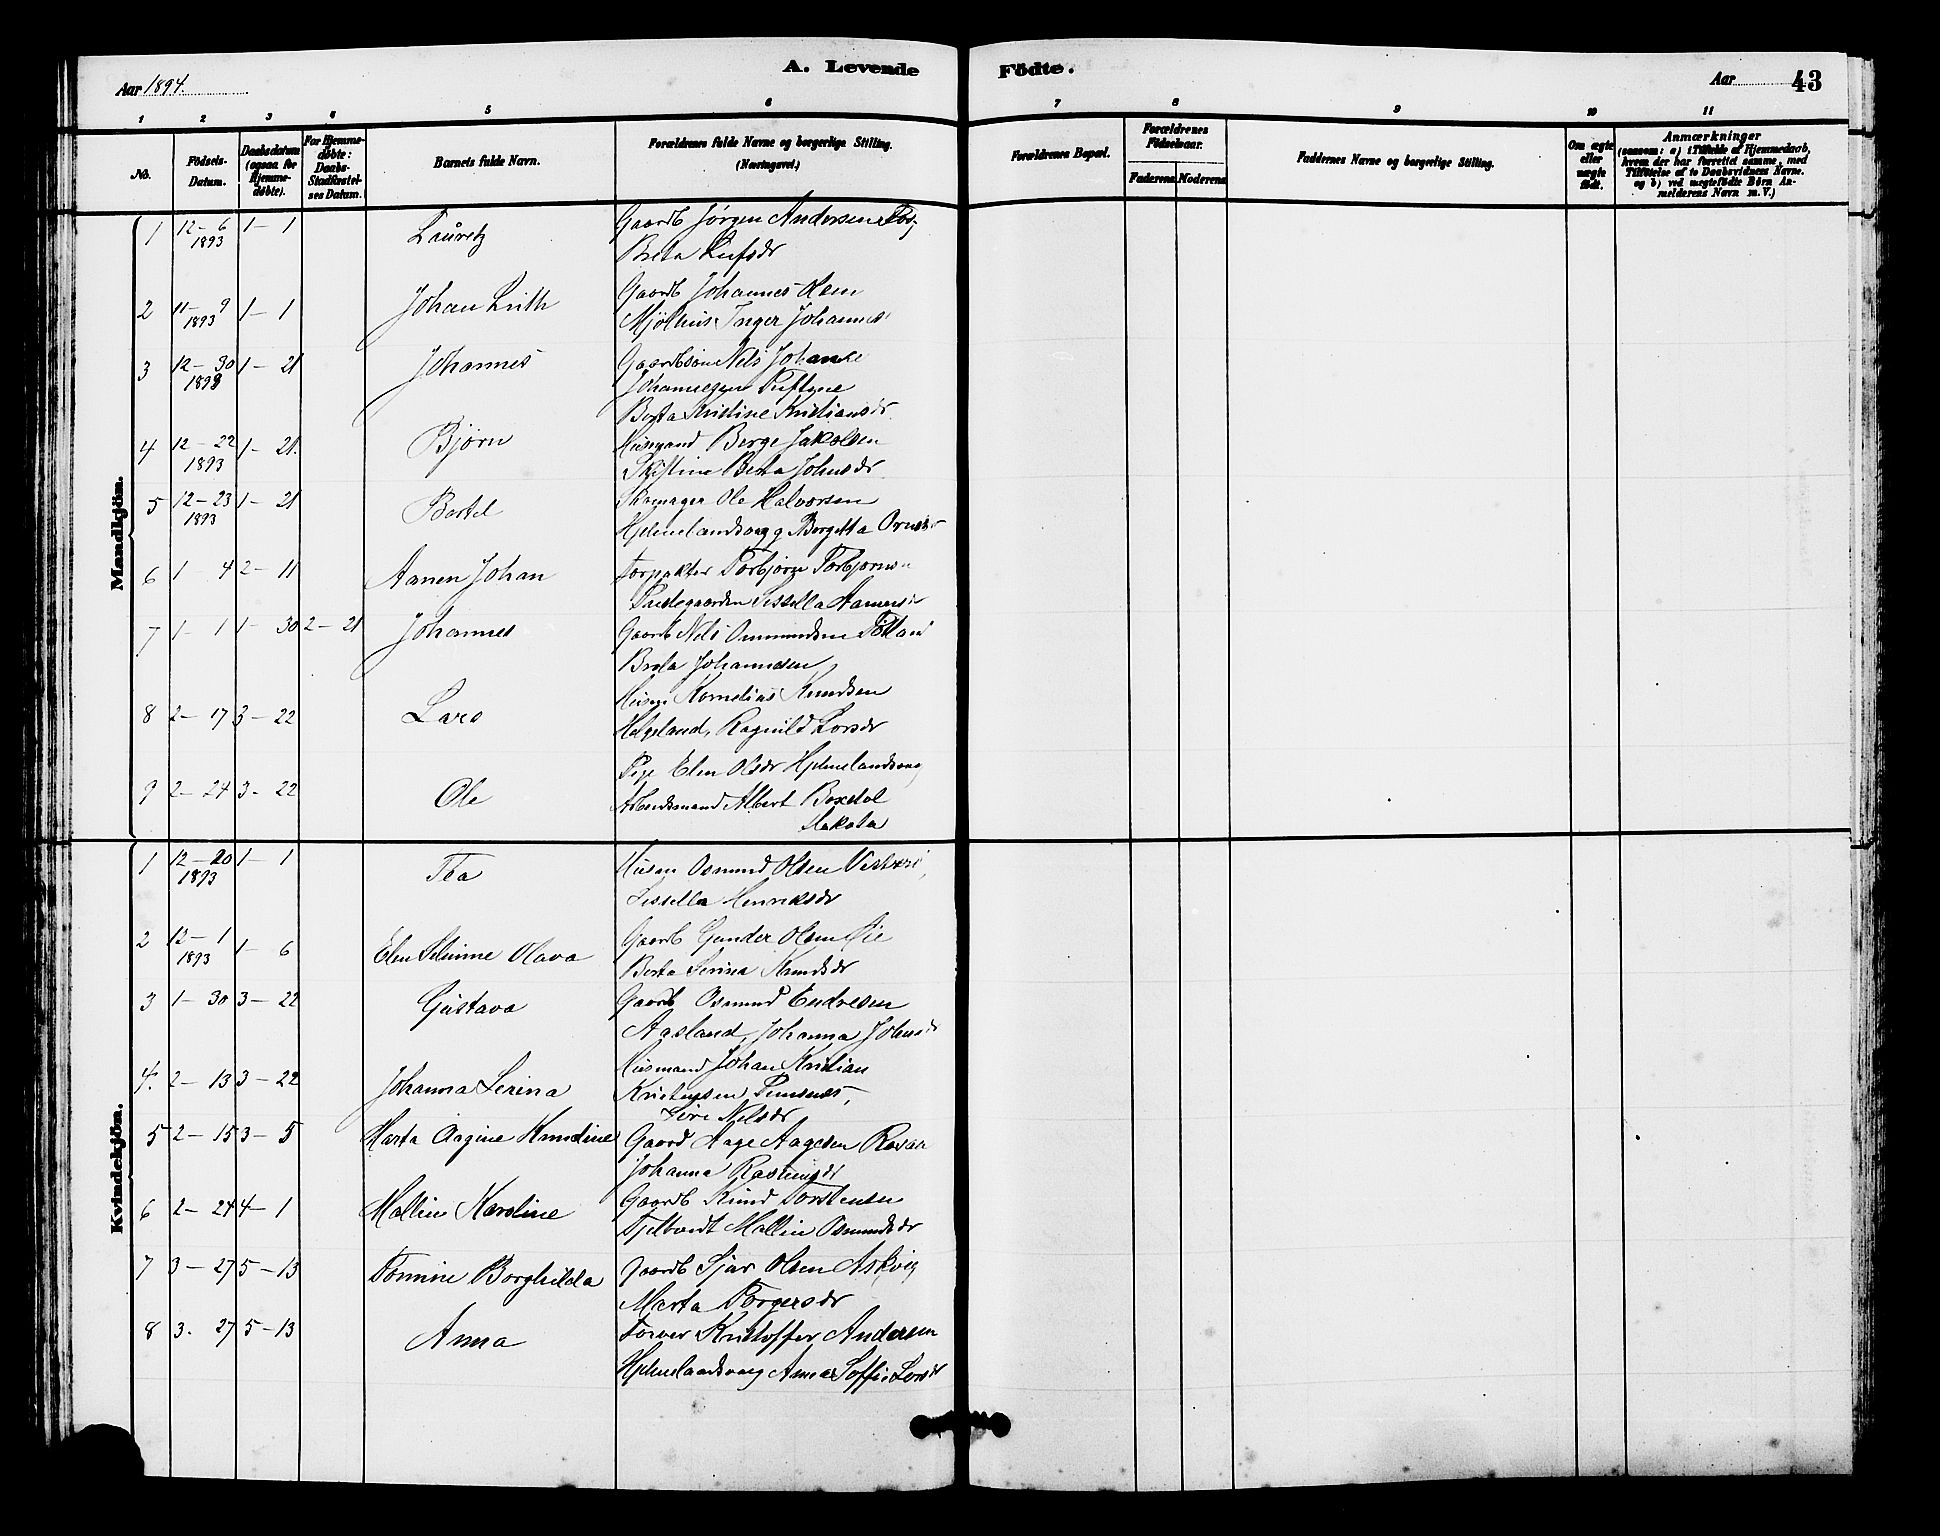 Aar 1894.
A. Levende Födte.
Aar 43
1 2 3 4 5 6 7 8 9 10 11
No.
Födsels-Datum.
Daabsdatum (ogsaa for Hjemmedøbte).
For Hjemmedøbte: Daabs-Stadfæstelses Datum.
Barnets fulde Navn.
Forældrenes fulde Navne og borgerlige Stilling. (Næringsvei.)
Forældrenes Bopæl.
Forældrenes Födselsaar.
Faderens Moderens
Faddernes Navne og borgerlige Stilling.
Om ægte eller uægte födt.
Anmærkninger
(saasom: a) i Tilfælde af Hjemmedaab, hvem der har forrettet samme, med Tilföielse af to Daabsvidners Navne. og b) ved uægtefödte Börn Anmelderens Navn m. V.)
Mandkjön.
1 12–6 1893 1–1 Lauretz Gaardb Jørgen Andersen
Berta
2 11–9 1893 1–1 Johan Gaardb Johannes Olsen
Mjølhus Inger Johannes
3 12–30 1893 1–21 Johannes Gaardbsøn Nels Johan
Johannessen Tuftene
Berta Kristine Kristiansdr
4 12–22 1893 1–21. Bjørn Husmand Berge Jakobsen
Berta Johnsdr
5 12–23 1893 1–21 Bertel Skomager Ole Halvorsen
Hjelmelandsvaag Bergetta
6 1–4 2–11 Aanen Johan Forpakter Torbjørn Torbjørns
Prestegaarden Sissella Aanensdr
7 1–1 1–30 2–21 Johannes Gaardb Nels Osmundsen
Berta Johannesen
8 2–17 3–22 Lars Husm Kornelius Knudsen
Helgeland, Ragnild Larsdr
9 2–24 3–22 Ole Pige Elen Olsdr Hjelmelandsvaag
Arbeidsmand Albert
Dakota
Kvindekjön.
1 12–20 1893 1–1 Tea Husm Osmund Olsen
Sissella Henriksdr
2 12–1 1893 1–6 Elen Olava Gaardb Gunder Olsen Øie
Berta Serina Knudsdr
3 1–30 3–22 Gustava Gaardb Osmund Endresen
Aasland, Johanna Johnsdr
4. 2–13 3–22 Johanna Serina Husmand Johan Kristian
Kristensen
Siri Nelsdr
5 2–15 3–5 Marta Aagine Knudine Gaard Aage Aagesen
Johanna Rasmusdr
6 2–24 4–1 Mallin Karoline Gaardb Knud Torstensen
Mallin Osmundsdr
7 3–27 5–13 Tomine Borghilda Gaardb Sjur Olsen Askvig
Marta Torgersdr
8 3. 27 5–13 Anna Farver Kristoffer Andersen
Hjelmelandsvaag Anna Soffie Larsdr